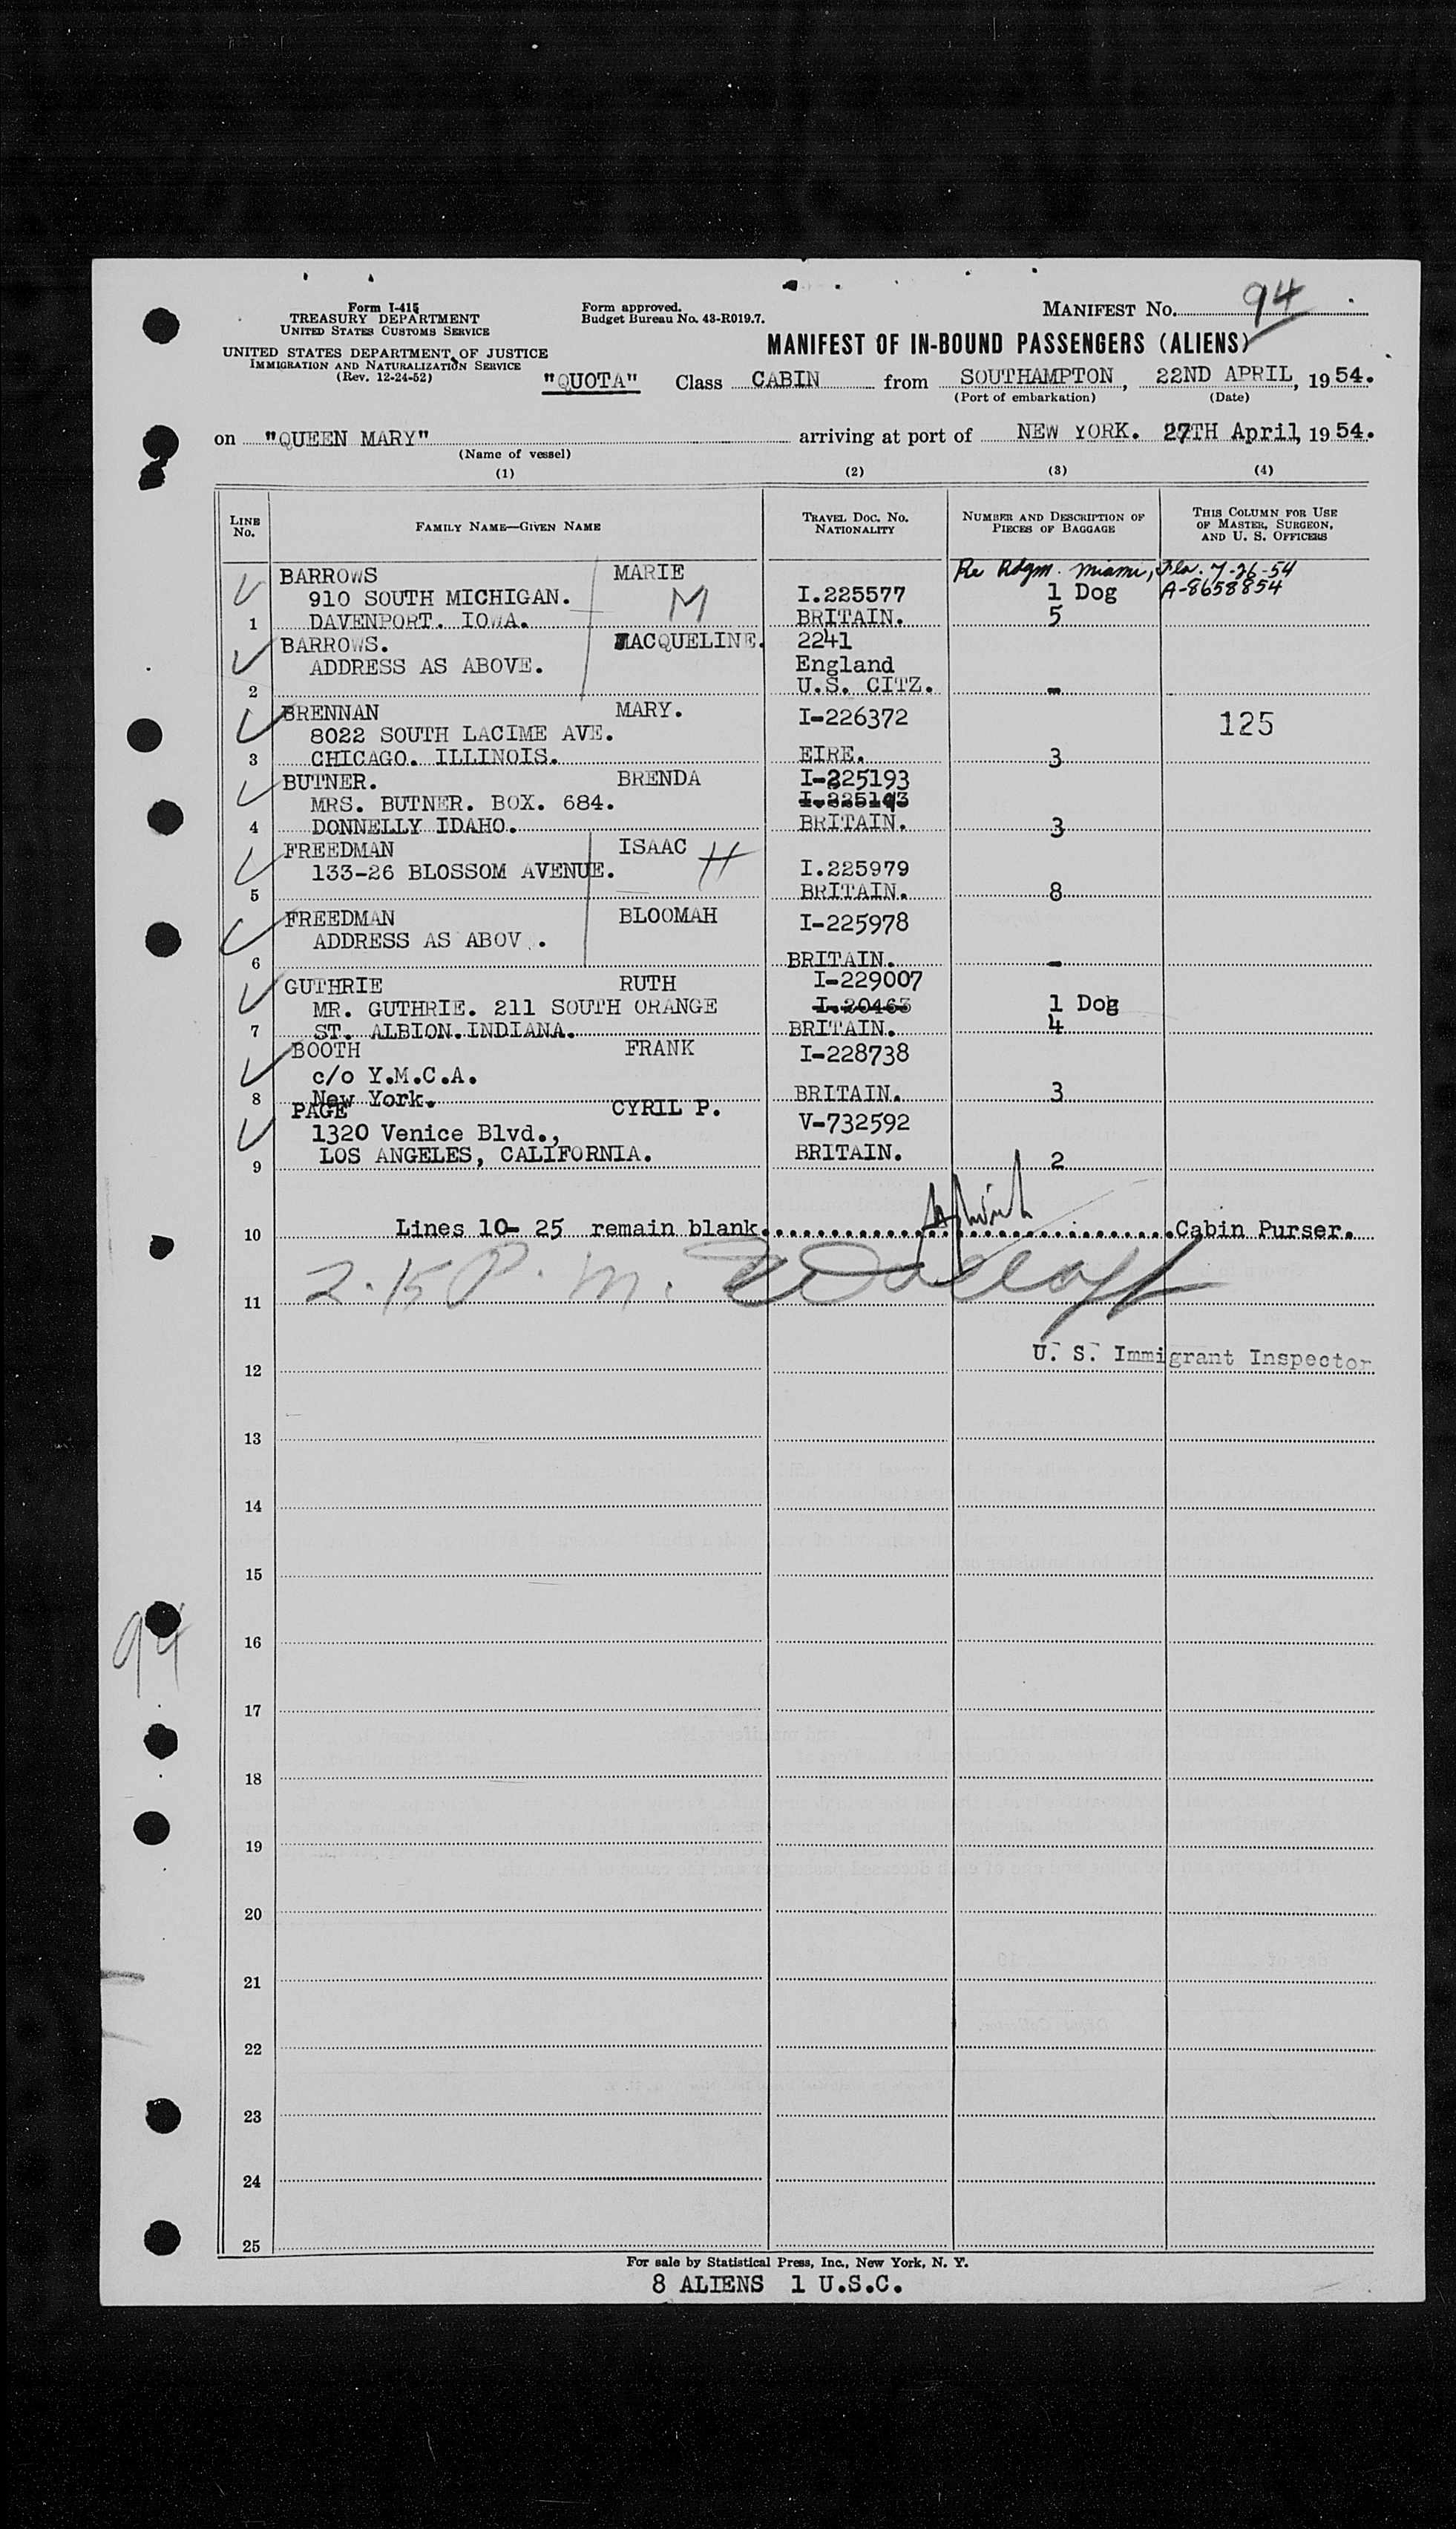 Form I-415
TREASURY DEPARTMENT
UNITED STATES CUSTOMS SERVICE
UNITED STATES DEPARTMENT OF JUSTICE
IMMIGRATION AND NATURALIZATION SERVICE
(Rev. 12-24-52)
Form approved.
Budget Bureau No. 43-R019.7.
MANIFEST No. 94
MANIFEST OF IN-BOUND PASSENGERS (ALIENS)
"QUOTA" Class CABIN from SOUTHAMPTON, 22ND APRIL, 1954.
(Port of embarkation) (Date)
on "QUEEN MARY" arriving at port of NEW YORK. 27TH April, 1954.
(Name of vessel)
(1) (2) (3) (4)
LINE No. FAMILY NAME—GIVEN NAME TRAVEL DOC. No. NATIONALITY NUMBER AND DESCRIPTION OF PIECES OF BAGGAGE THIS COLUMN FOR USE OF MASTER, SURGEON, AND U. S. OFFICERS
Re Rdgm. Miami, Fla. 7-26-54
BARROWS MARIE
910 SOUTH MICHIGAN. M I.225577 1 Dog A-8658854
1 DAVENPORT. IOWA. BRITAIN. 5
BARROWS. JACQUELINE. 2241
ADDRESS AS ABOVE. England
2 U.S. CITZ. -
BRENNAN MARY. I-226372 125
8022 SOUTH LACIME AVE.
3 CHICAGO. ILLINOIS. EIRE. 3
BUTNER. BRENDA I-225193
MRS. BUTNER. BOX. 684. I.225193
4 DONNELLY IDAHO. BRITAIN. 3
FREEDMAN ISAAC H
133-26 BLOSSOM AVENUE. I.225979
5 BRITAIN. 8
FREEDMAN BLOOMAH I-225978
ADDRESS AS ABOV .
6 BRITAIN. -
GUTHRIE RUTH I-229007
MR. GUTHRIE. 211 SOUTH ORANGE I.20463 1 Dog
7 ST. ALBION.INDIANA. BRITAIN. 4
BOOTH FRANK I-228738
c/o Y.M.C.A.
8 New York. BRITAIN. 3
PAGE CYRIL P. V-732592
1320 Venice Blvd.,
9 LOS ANGELES, CALIFORNIA. BRITAIN. 2
10 Lines 10- 25 remain blank. Cabin Purser.
11 2.15 P.M.
U. S. Immigrant Inspector
12
13
14
15
16
94
17
18
19
20
21
22
23
24
25
For sale by Statistical Press, Inc., New York, N. Y.
8 ALIENS 1 U.S.C.